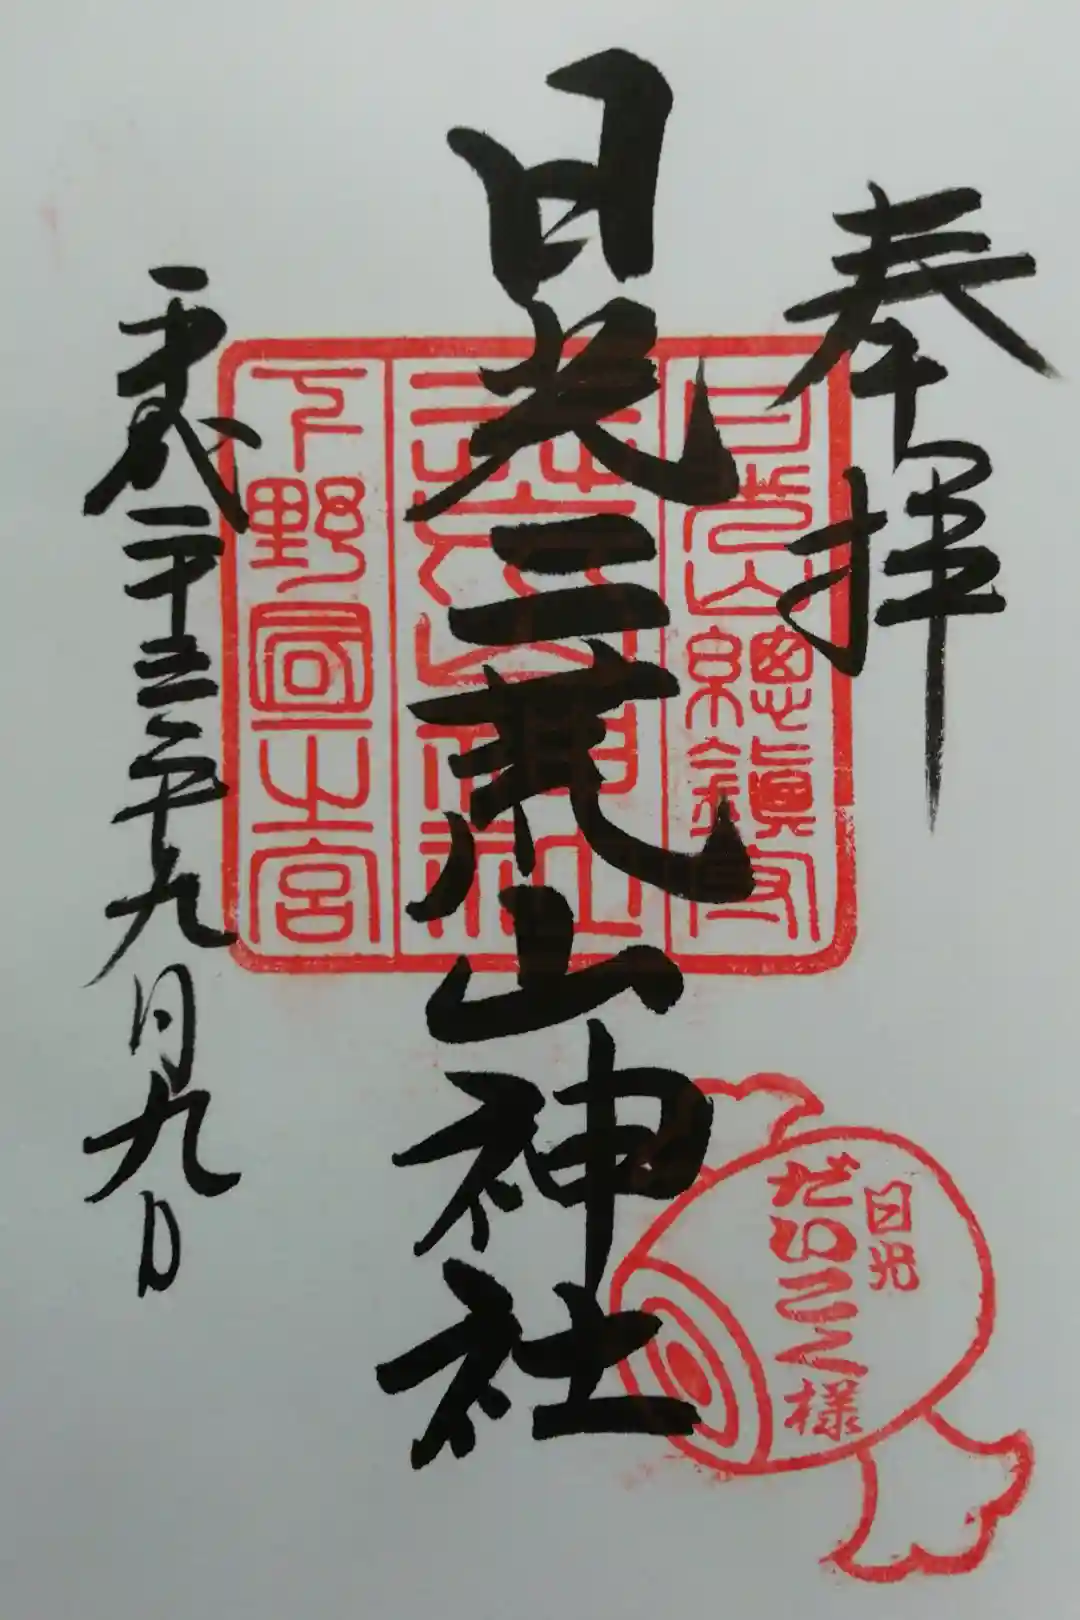 奉拝
日光山總鎮守
日光二荒山神社
下野國一之宮
平成二十三年九月九日
日光
だいこく様